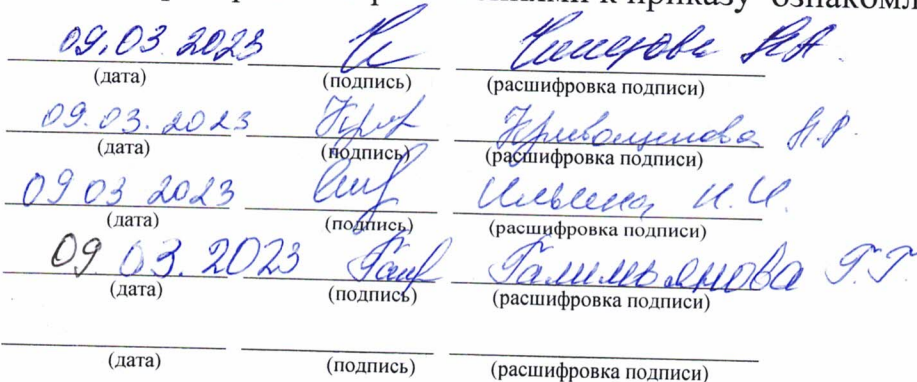 к приказу ознакомл
09.03.2023 Н.А.
(дата) (подпись) (расшифровка подписи)
09.03.2023 Кривощепова Н.Р.
(дата) (подпись) (расшифровка подписи)
09 03 2023 Ильина И.И.
(дата) (подпись) (расшифровка подписи)
09 03. 2023 Галимьянова Г.Г.
(дата) (подпись) (расшифровка подписи)
(дата) (подпись) (расшифровка подписи)